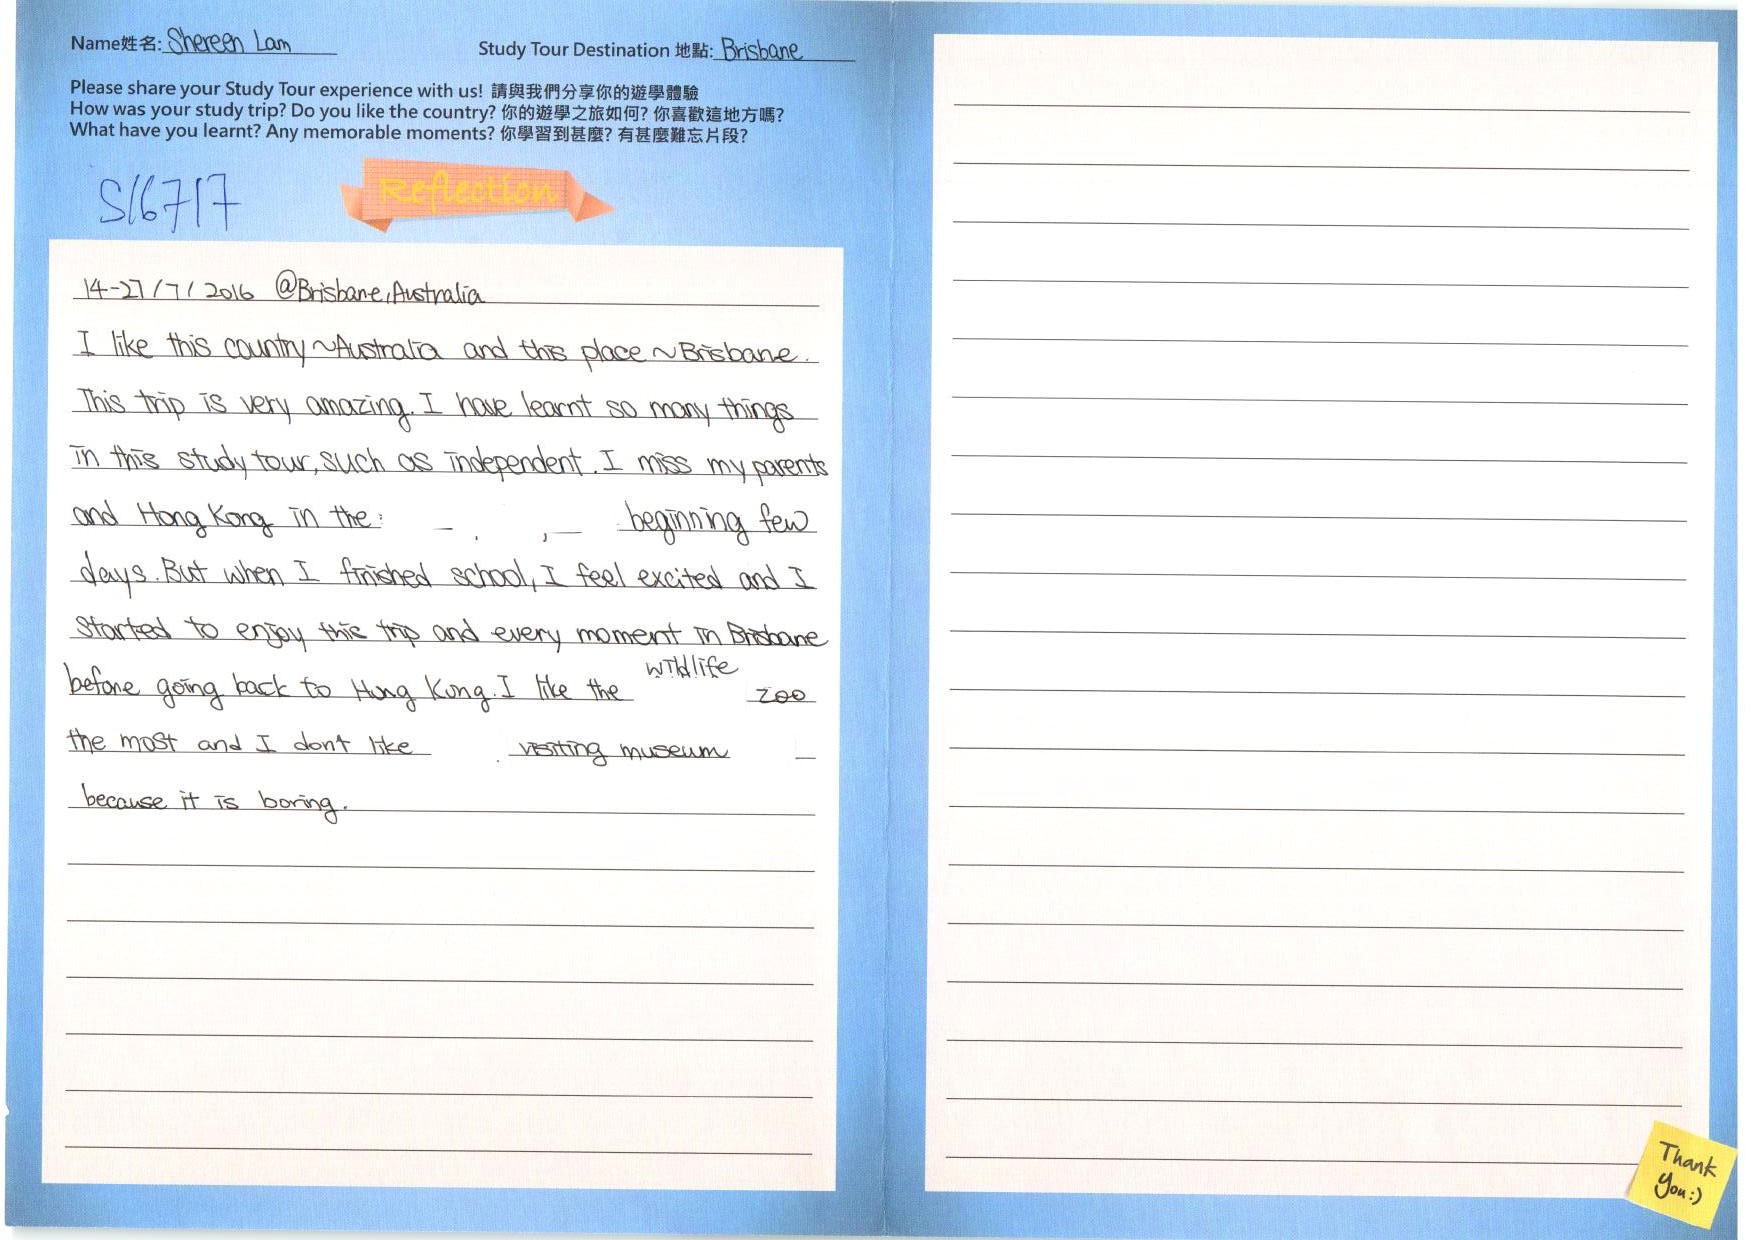 Name姓名: Shereen Lam
Study Tour Destination 地點: Brisbane
Please share your Study Tour experience with us! 請與我們分享你的遊學體驗
How was your study trip? Do you like the country? 你的遊學之旅如何? 你喜歡這地方嗎?
What have you learnt? Any memorable moments? 你學習到甚麼? 有甚麼難忘片段?
S16717
Reflection
14-27/7/2016 @Brisbane, Australia
I like this country ~Australia and this place ~Brisbane.
This trip is very amazing. I have learnt so many things
in this study tour, such as independent. I miss my parents
and Hong Kong in the beginning few
days. But when I finished school, I feel excited and I
started to enjoy this trip and every moment in Brisbane
before going back to Hong Kong. I like the wildlife zoo
the most and I don't like visiting museum
because it is boring.
Thank
you:)